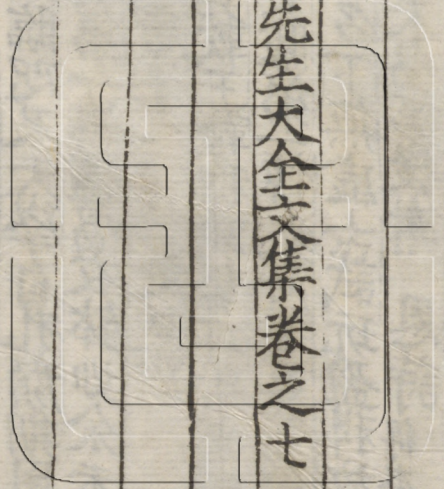 先生大全文集卷之七